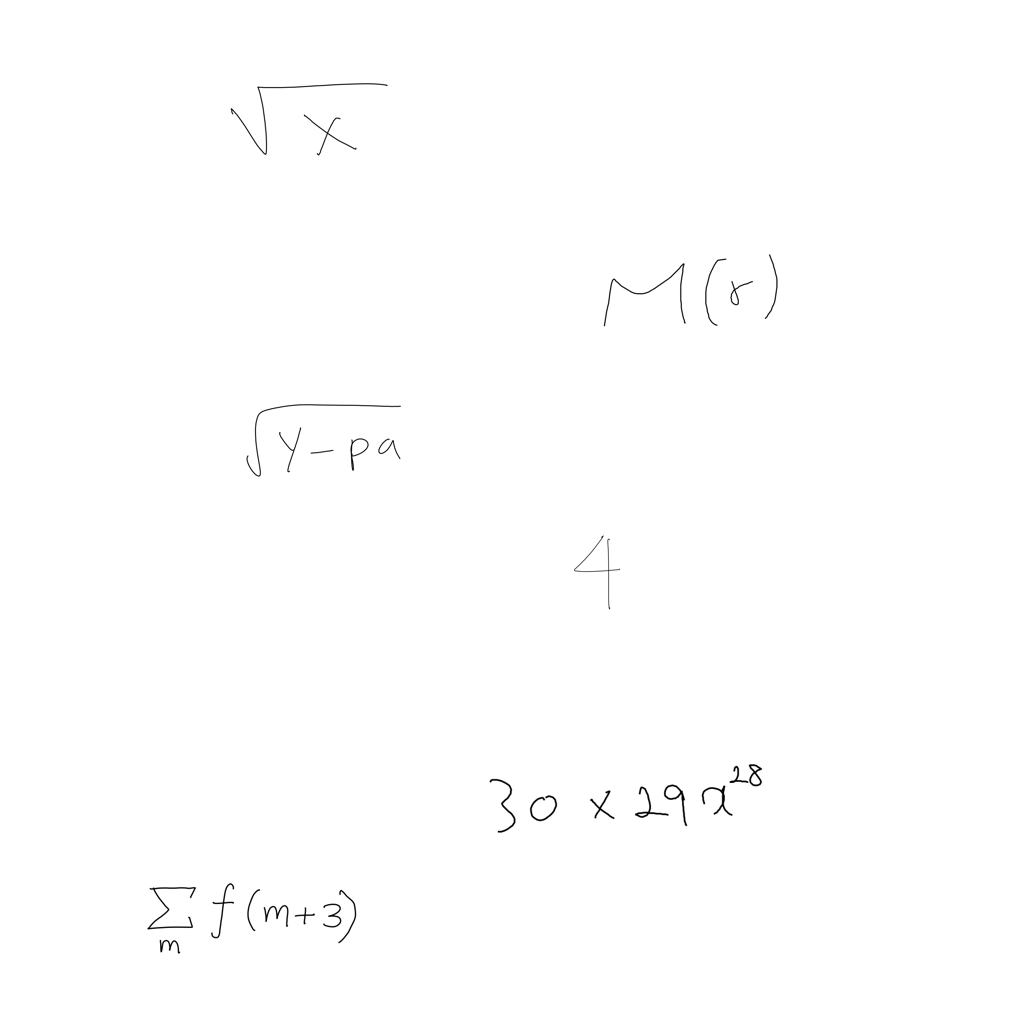 √x
M(γ)
√(y-pa)
4
30 × 29x²⁸
∑_m f(m+3)